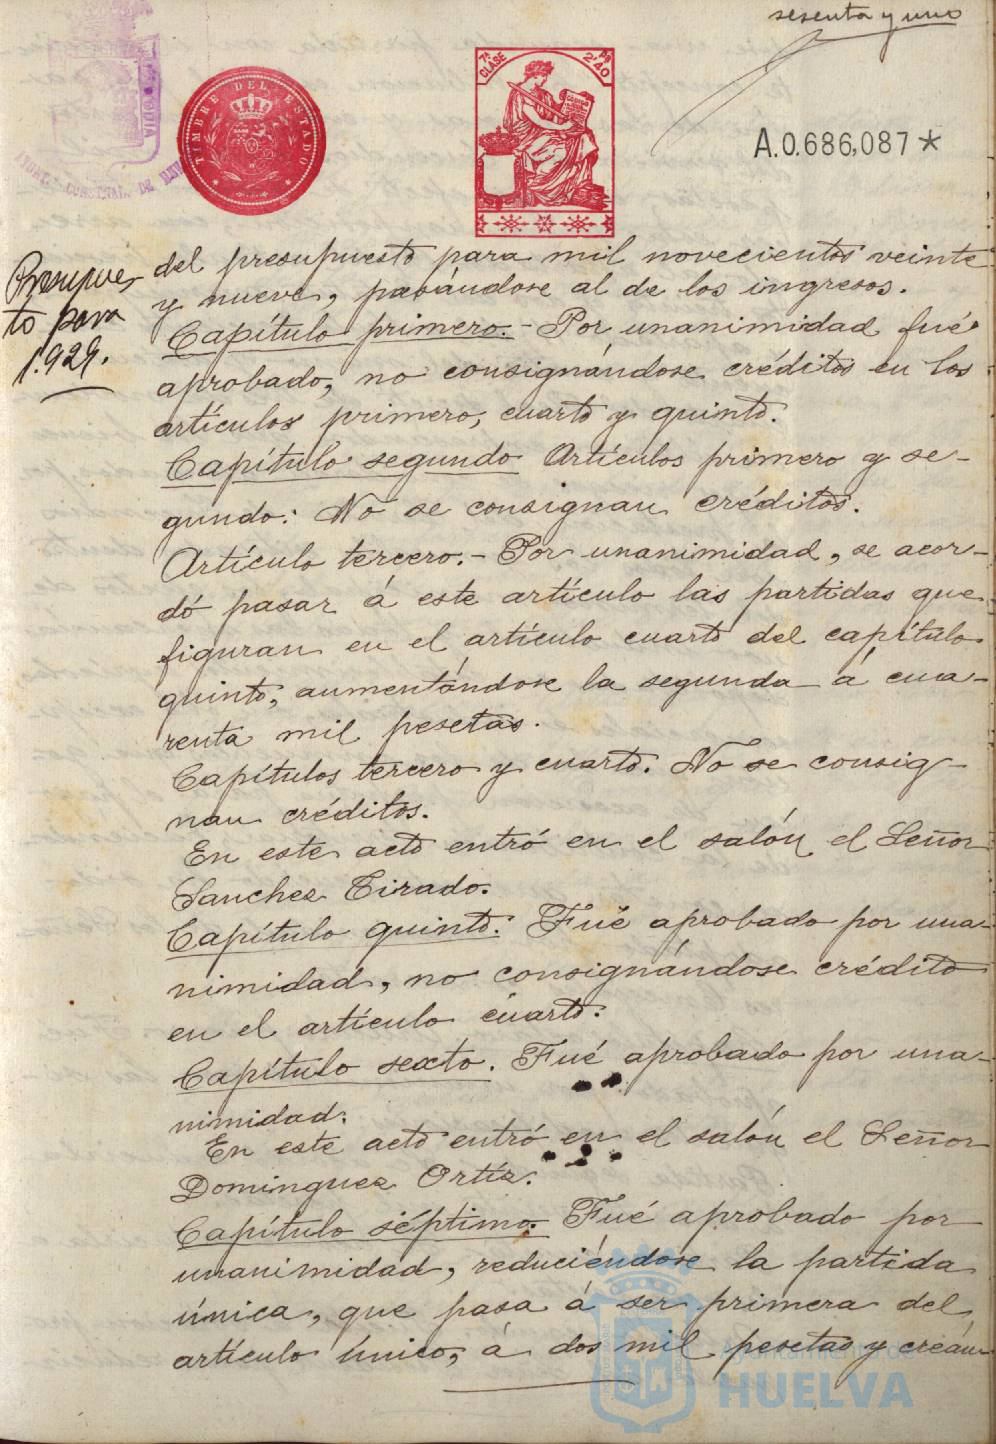 sesenta y uno
TIMBRE DEL ESTADO
7ª CLASE
Pts 2'40
A.0.686,087*
Presupues
to para
1.929.
del presupuesto para mil novecientos veinte
y nueve, pasándose al de los ingresos.
Capítulo primero.- Por unanimidad fué
aprobado, no consignándose créditos en los
artículos primero, cuarto y quinto.
Capítulo segundo Artículos primero y se-
gundo: No se consignan créditos.
Artículo tercero.- Por unanimidad, se acor-
dó pasar á este artículo las partidas que
figuran en el artículo cuarto del capítulo
quinto, aumentándose la segunda á cua-
renta mil pesetas.
Capítulos tercero y cuarto. No se consig-
nan créditos.
En este acto entró en el salón el Señor
Sanchez Tirado.
Capítulo quinto. Fué aprobado por una-
nimidad, no consignándose crédito
en el artículo cuarto.
Capítulo sexto. Fué aprobado por una-
nimidad.
En este acto entró en el salón el Señor
Dominguez Ortíz.
Capítulo séptimo. Fué aprobado por
unanimidad, reduciéndose la partida
única, que pasa á ser primera del
artículo único, á dos mil pesetas y creán-
Ayuntamiento de
HUELVA